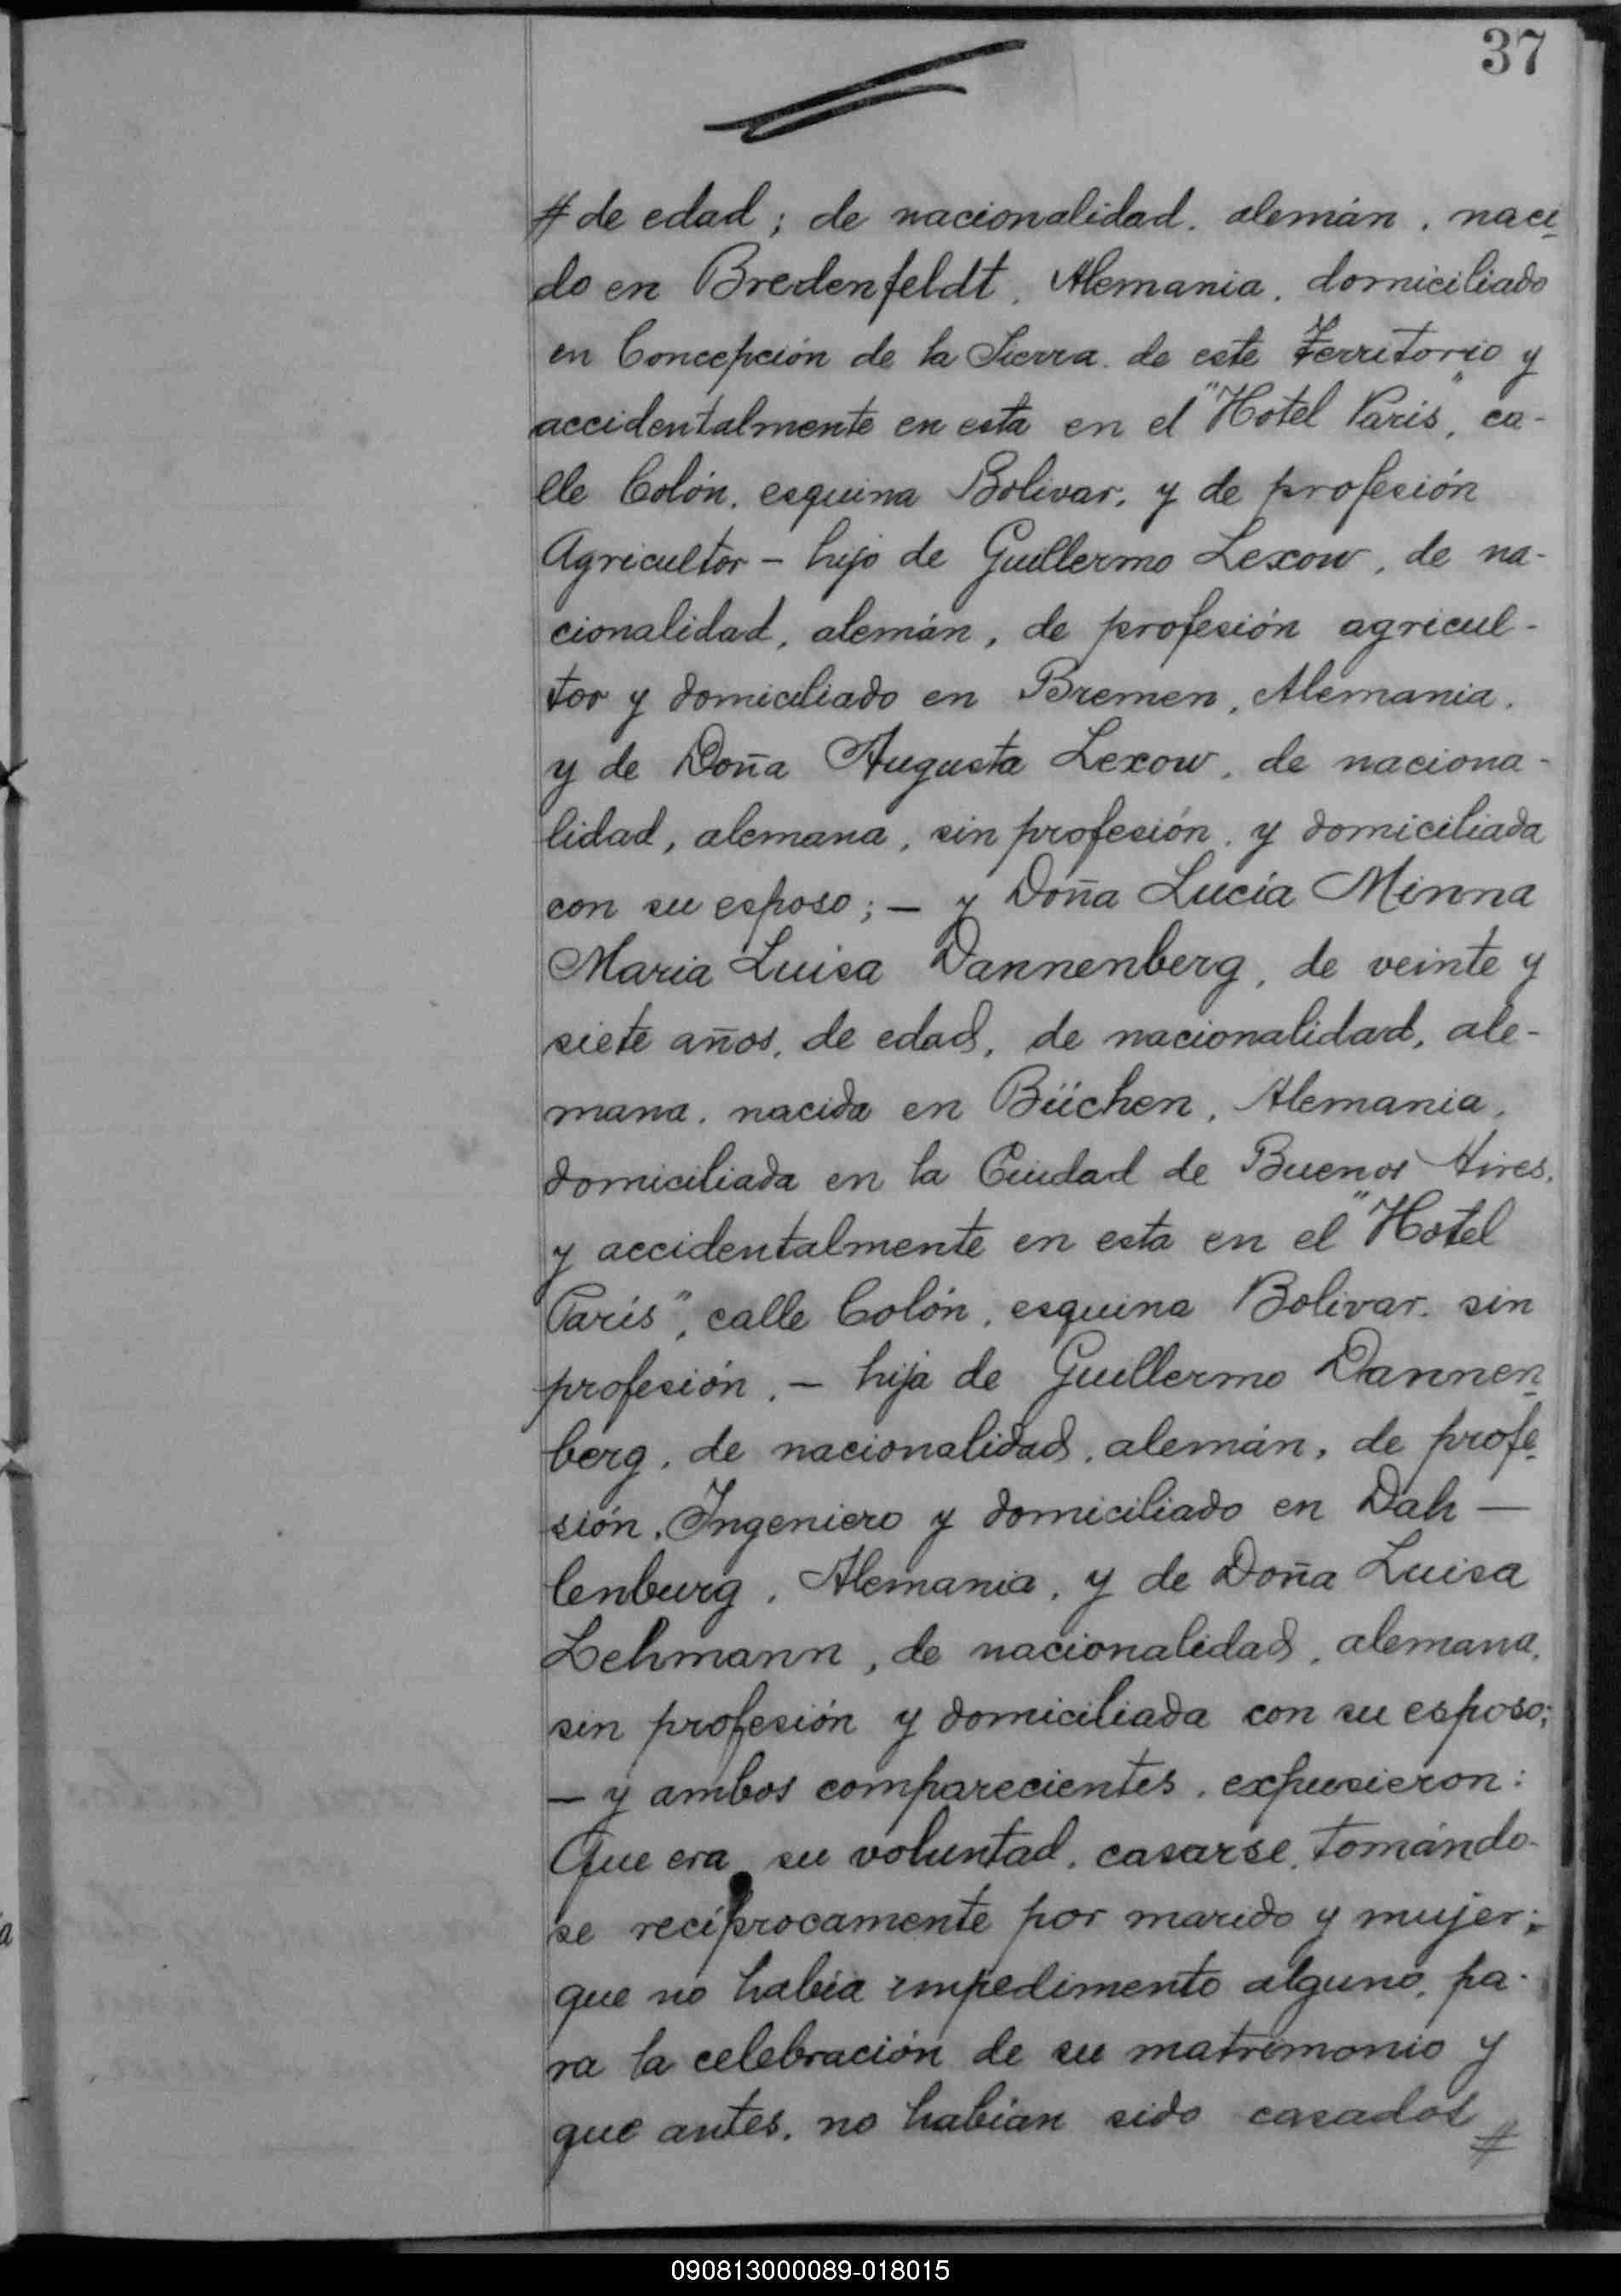 37
# de edad; de nacionalidad. alemán, naci
do en Bredenfeldt, Alemania, domiciliado
en Concepción de la Sierra. de este Territorio y
accidentalmente en esta en el "Hotel Paris", ca-
lle Colón, esquina Bolivar, y de profesión
Agricultor - hijo de Guillermo Lexow, de na-
cionalidad, alemán, de profesión agricul-
tor y domiciliado en Bremen, Alemania,
y de Doña Augusta Lexow, de naciona-
lidad, alemana, sin profesión, y domiciliada
con su esposo; - y Doña Lucía Minna
Maria Luisa Dannenberg, de veinte y
siete años, de edad, de nacionalidad, ale-
mana, nacida en Büchen, Alemania,
domiciliada en la Ciudad de Buenos Aires,
y accidentalmente en esta en el "Hotel
París", calle Colón, esquina Bolivar, sin
profesión, - hija de Guillermo Dannen
berg, de nacionalidad, alemán, de profe
sión, Ingeniero y domiciliado en Dah -
lenburg, Alemania, y de Doña Luisa
Lehmann, de nacionalidad, alemana,
sin profesión y domiciliada con su esposo;
- y ambos comparecientes, expusieron:
Que era su voluntad, casarse, tomándo-
se recíprocamente por marido y mujer;
que no había impedimento alguno, pa-
ra la celebración de su matrimonio y
que antes, no habían sido casados #
a
090813000089-018015